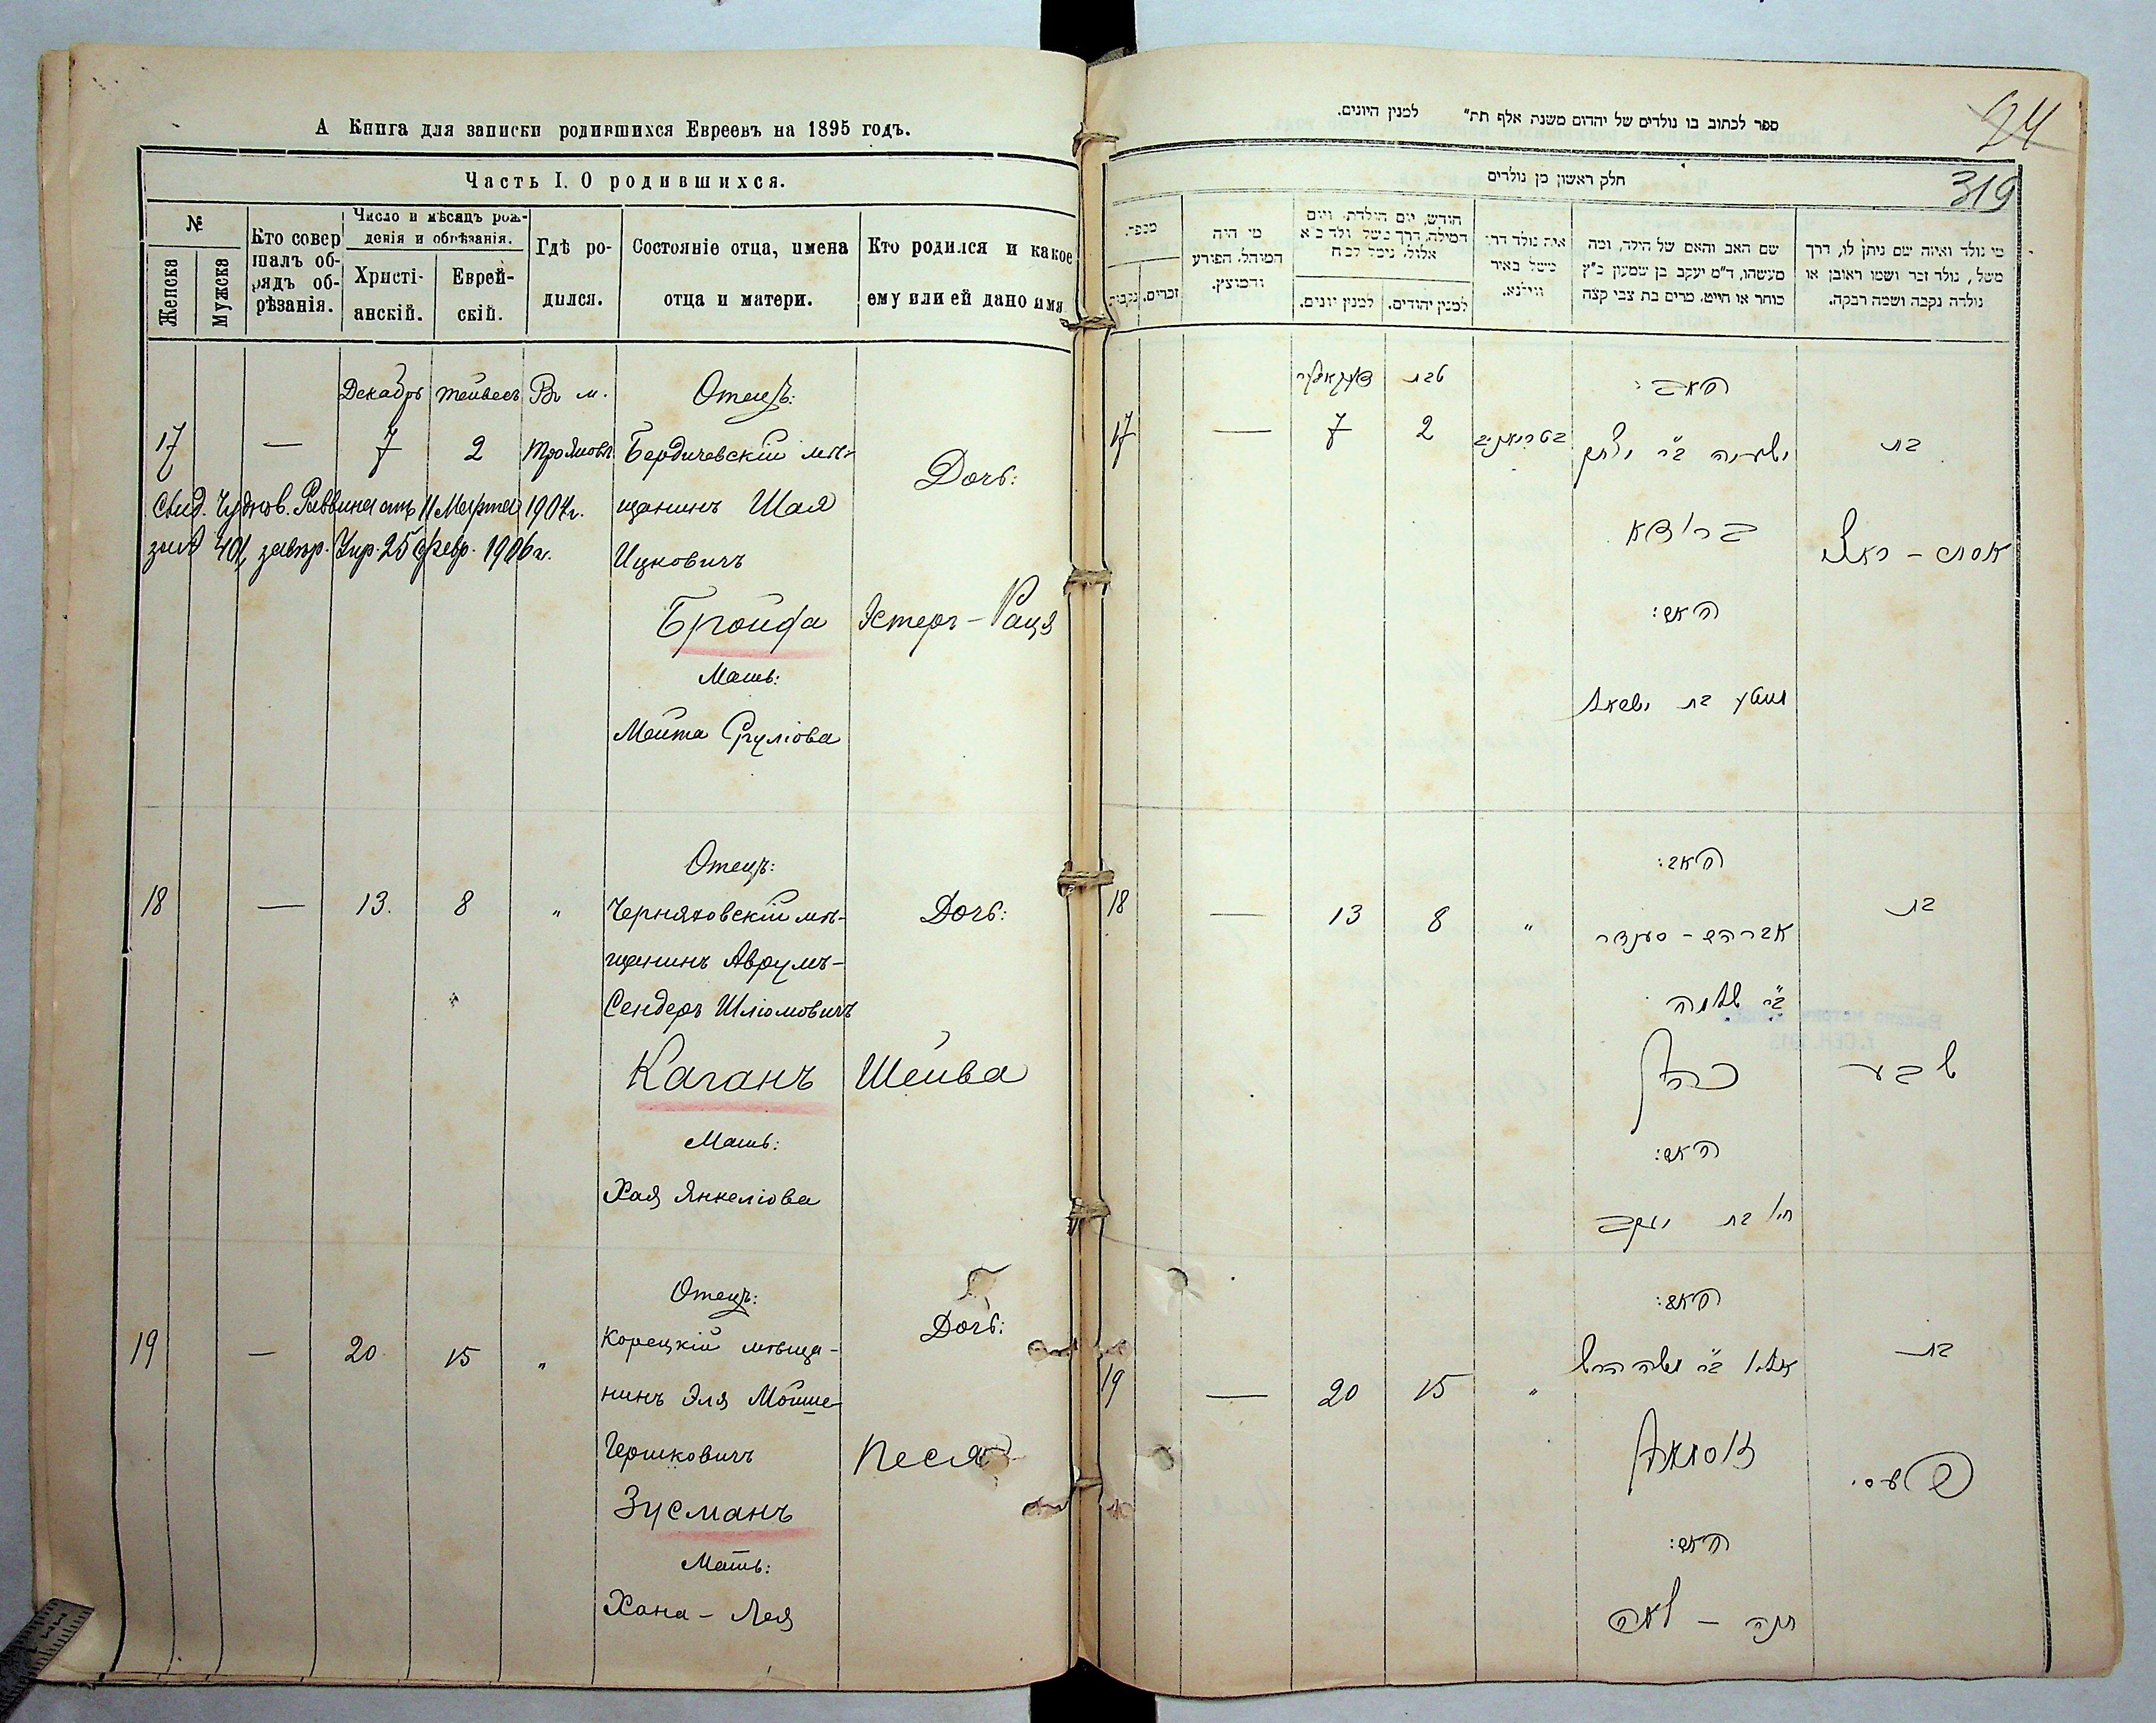 А Книга для записки родившихся Евреевъ на 1895 годъ.
Часть I. О родившихся.
№
Женска
Мужска
Кто совершалъ обрядъ обрѣзанія.
Число и мѣсяцъ рожденія и обрѣзанія.
Христіанскій.
Еврейскій.
Гдѣ родился.
Состояніе отца, имена отца и матери.
Кто родился и какое ему или ей дано имя
Декабрь Тейвесъ Въ м. Отецъ:
17 — 7 2 Трояновъ Бердичевскій мѣ-
Дочь:
Свид. Чуднов. Раввина отъ 11 Марта 1904 г. щанинъ Шая
за № 401, завѣр. Упр. 25 февр. 1906 г. Ицковичъ
Бройда Эстеръ-Рация
Мать:
Мейта Сруліова
Отецъ:
18 — 13. 8 " Черняховскій мѣ- Дочь:
щанинъ Аврумъ-
Сендеръ Шліомовичъ
Каганъ Шейва
Мать:
Хая Янкеліова
Отецъ:
19 — 20 15 " Корецкій мѣща- Дочь:
нинъ Эля Мойше-
Гершковичъ Песя
Зусманъ
Мать:
Хана - Лея
ספר לכתוב בו נולדים של יהדום משנת אלף תת״ למנין היונים.
24
319
חלק ראשון מן נולדים
מספר.
זכרים. נקבות
מי היה המוהל. הפורע והמוצץ.
חודש, יום הולדת, ויום המילה, דרך משל ולד כ״א אלול, נימל לכ״ח
למנין יונים. למנין יהודים.
איה נולד דרך משל באיר ווילנא.
שם האב והאם של הילד, ומה מעשהו, ד״מ יעקב בן שמעון כ״ץ סוחר או חייט. מרים בת צבי קצה
מי נולד ואיזה שם ניתן לו, דרך משל, נולד זכר ושמו ראובן או נולדה נקבה ושמה רבקה.
דעקאבער טבת האב:
17 — 7 2 ישעיה ב״ר יצחק בת
ברוידא
האם:
18 — 13 8 " האב: בת
אברהם - סענדר
ב״ר שלמה
כהן שבע
האם:
חי׳ בת יעקב
האב:
19 — 20 15 " אלי׳ ב״ר משה הירש בת
זוסמאן פעסי
האם:
חנה - לאה